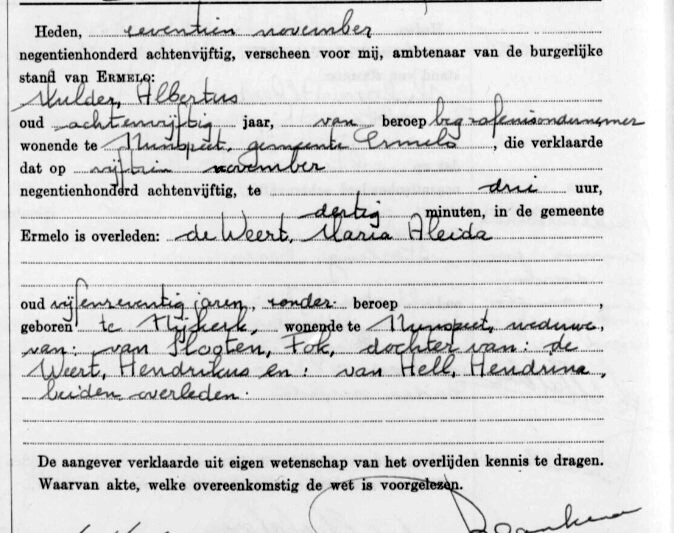 Heden, zeventien november
negentienhonderd achtenvijftig, verscheen voor mij, ambtenaar van de burgerlijke
stand van ERMELO:
Mulder, Albertus
oud achtenvijftig jaar, van beroep begrafenisondernemer
wonende te Nunspeet, gemeente Ermelo, die verklaarde
dat op vijftien november
negentienhonderd achtenvijftig, te drie uur,
dertig minuten, in de gemeente
Ermelo is overleden: de Weert, Maria Aleida
oud vijfenzeventig jaren, zonder beroep ,
geboren te Nijkerk, wonende te Nunspeet, weduwe,
van: van Slooten, Fok, dochter van: de
Weert, Hendrikus en: van Hell, Hendrina,
beiden overleden.
De aangever verklaarde uit eigen wetenschap van het overlijden kennis te dragen.
Waarvan akte, welke overeenkomstig de wet is voorgelezen.